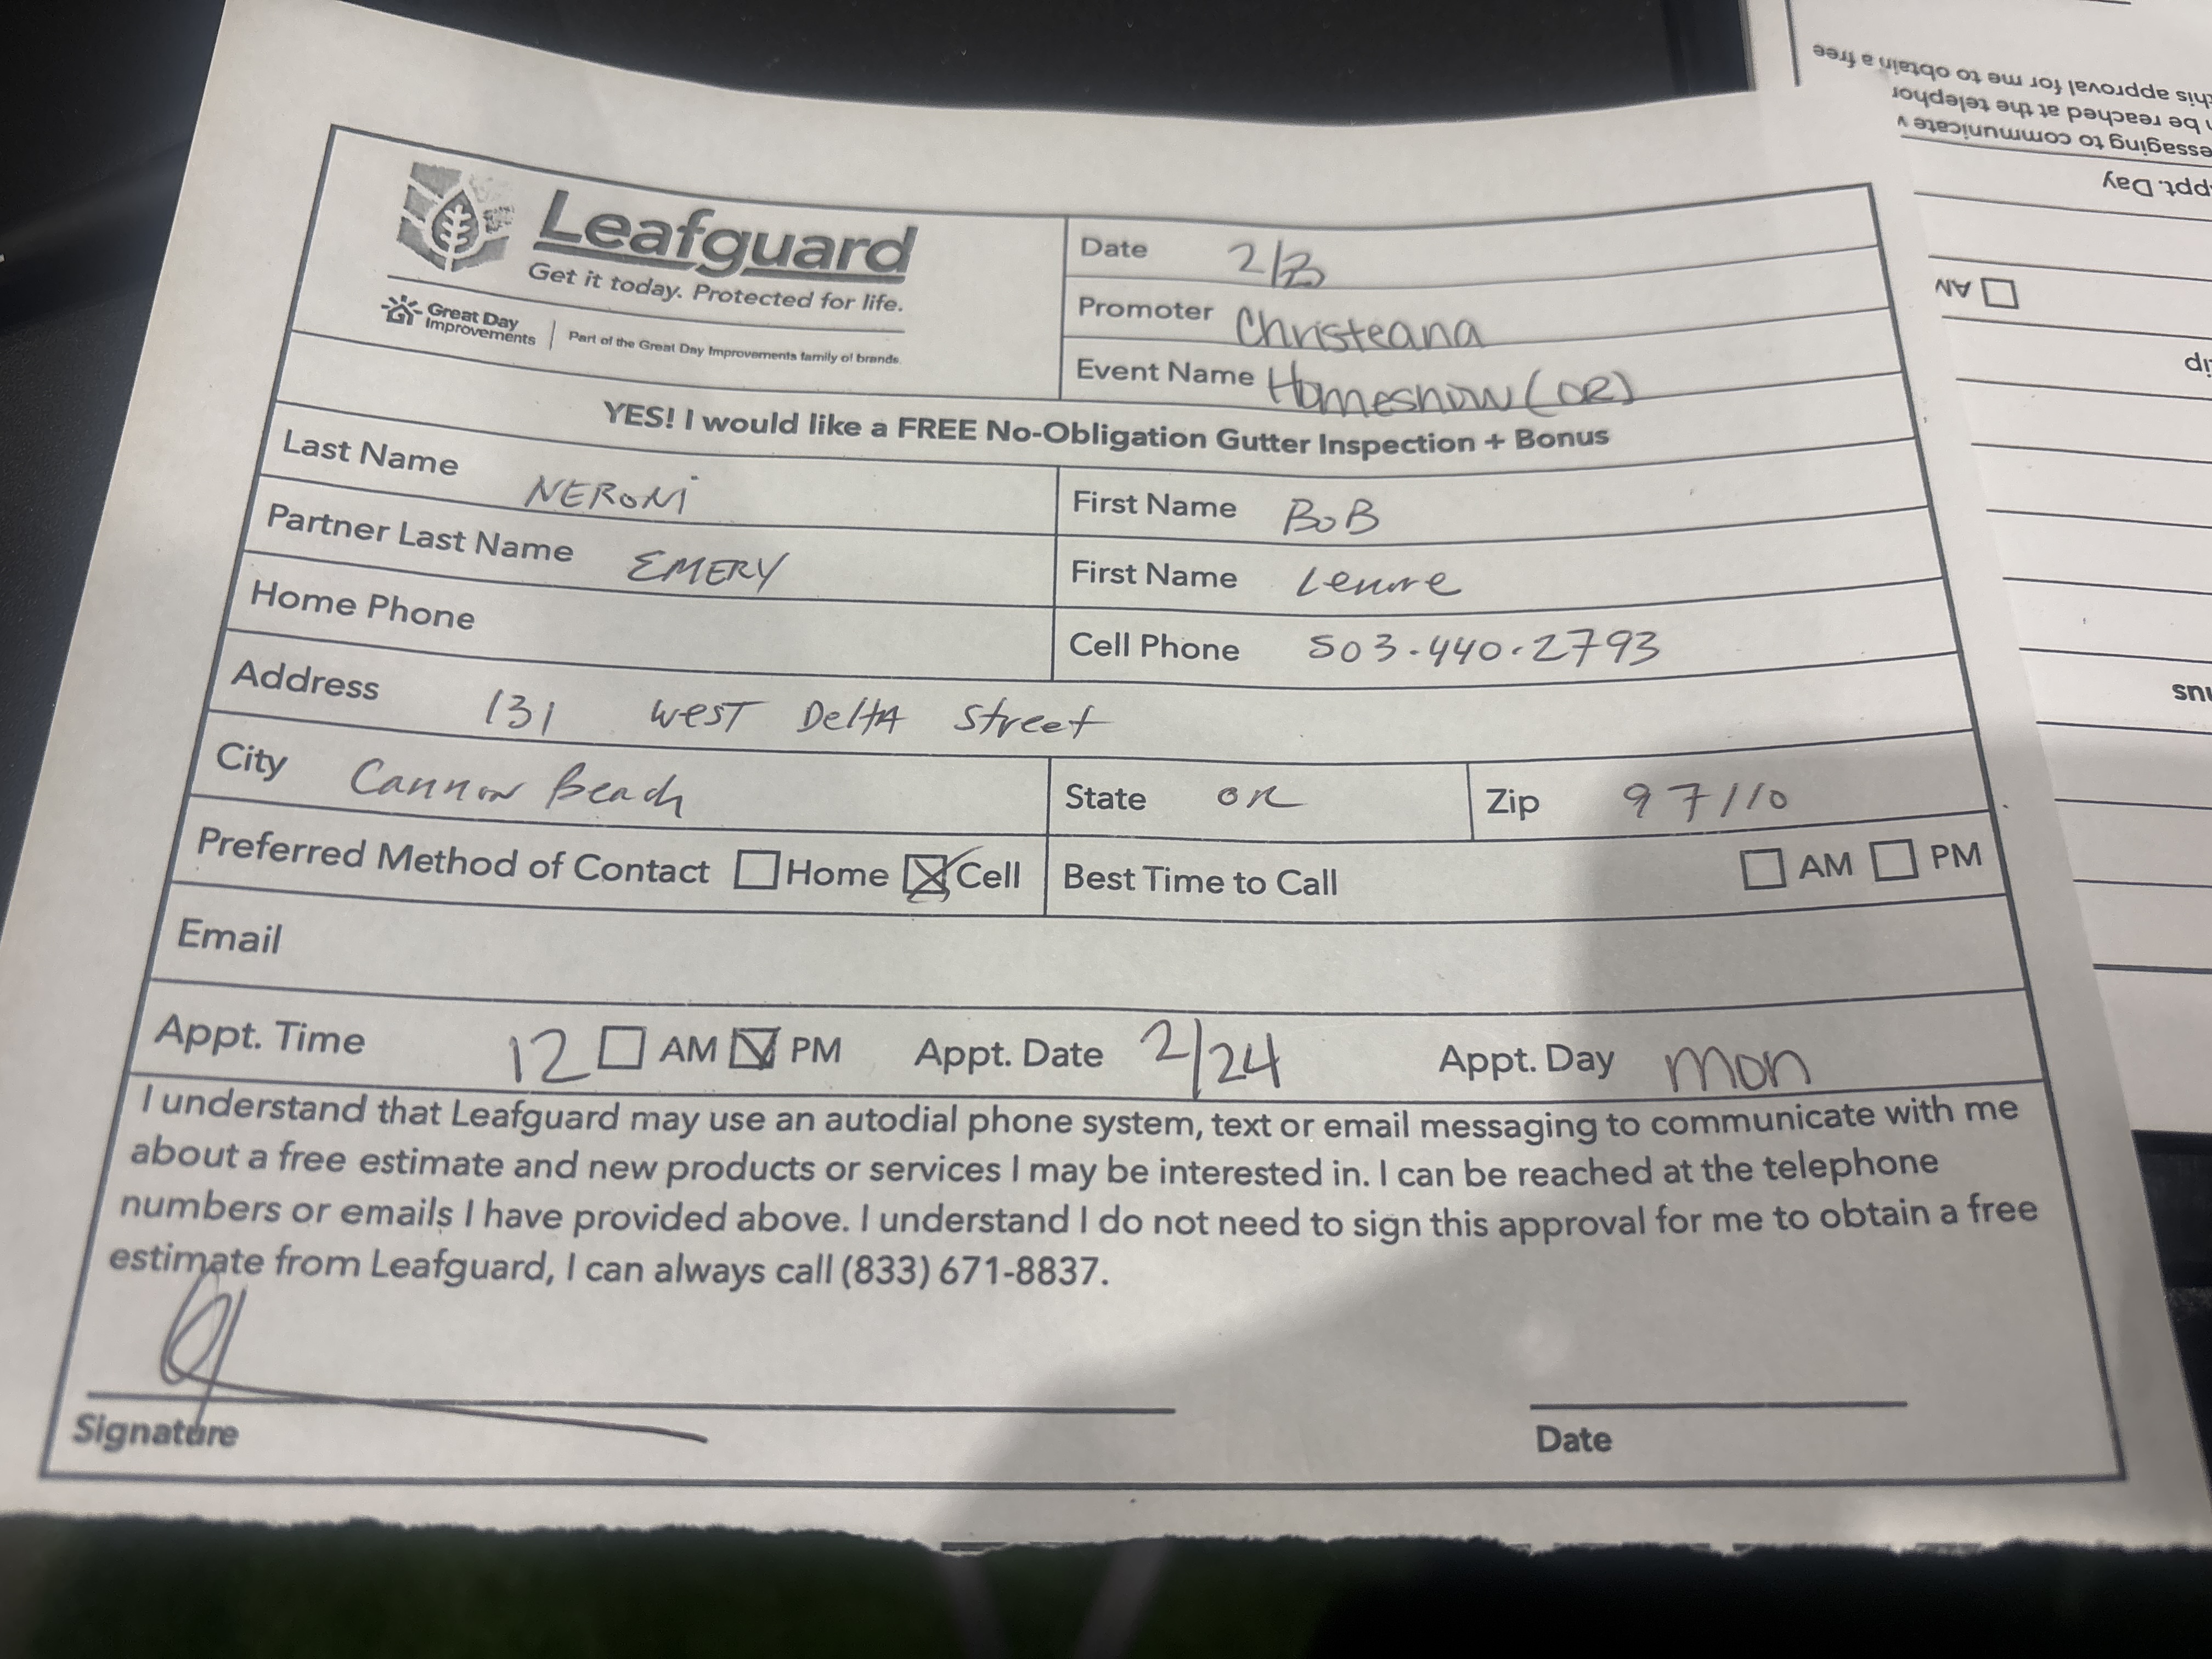 Leafguard
Get it today. Protected for life.
Great Day Improvements | Part of the Great Day Improvements family of brands.
Date 2/23
Promoter Christeana
Event Name Homeshow (OR)
YES! I would like a FREE No-Obligation Gutter Inspection + Bonus
Last Name NERONi First Name BOB
Partner Last Name EMERY First Name
Home Phone Cell Phone 503.440.2793
Address 131 WEST DelTA Street
City Cannon Beach State OR Zip 97110
Preferred Method of Contact ☐ Home ☒ Cell Best Time to Call ☐ AM ☐ PM
Email
Appt. Time 12 ☐ AM ☑ PM Appt. Date 2/24 Appt. Day Mon
I understand that Leafguard may use an autodial phone system, text or email messaging to communicate with me
about a free estimate and new products or services I may be interested in. I can be reached at the telephone
numbers or emails I have provided above. I understand I do not need to sign this approval for me to obtain a free
estimate from Leafguard, I can always call (833) 671-8837.
Signature Date
obtain a free
be reached at the
this approval for me to obtain a free
ppt. Day